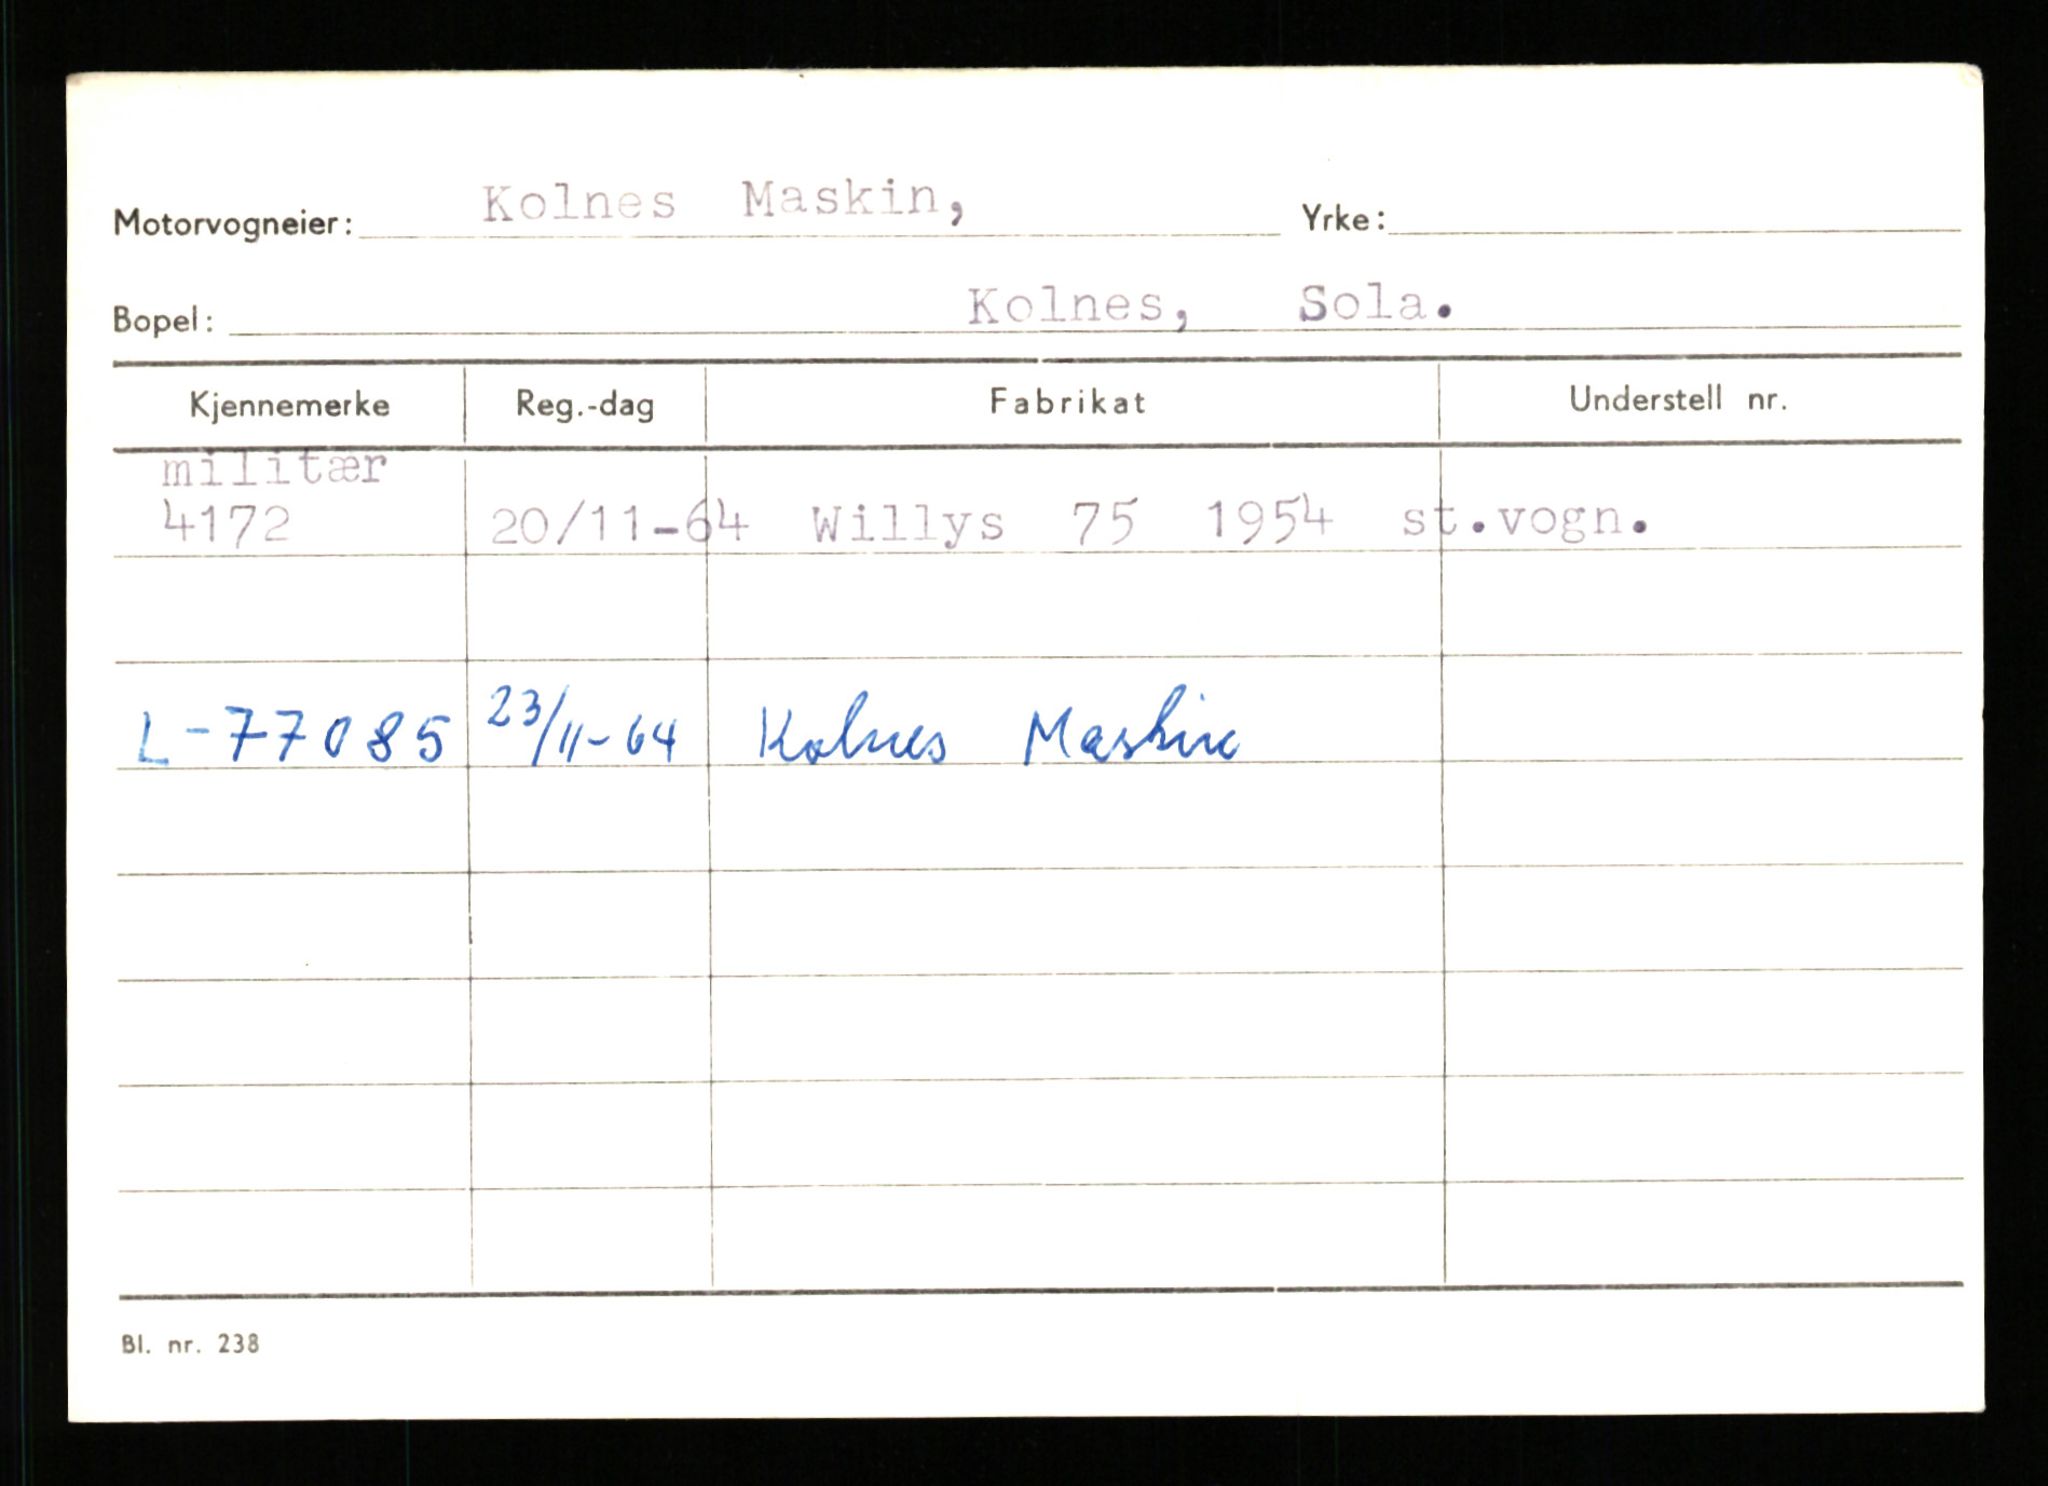 Motorvogneier: Kolnes Maskin, Yrke:
Bopel: Kolnes, Sola.
Kjennemerke Reg.-dag Fabrikat Understell nr.
militær
4172 20/11-64 Willys 75 1954 st.vogn.
L-77085 23/11-64 Kolnes Maskin
Bl. nr. 238